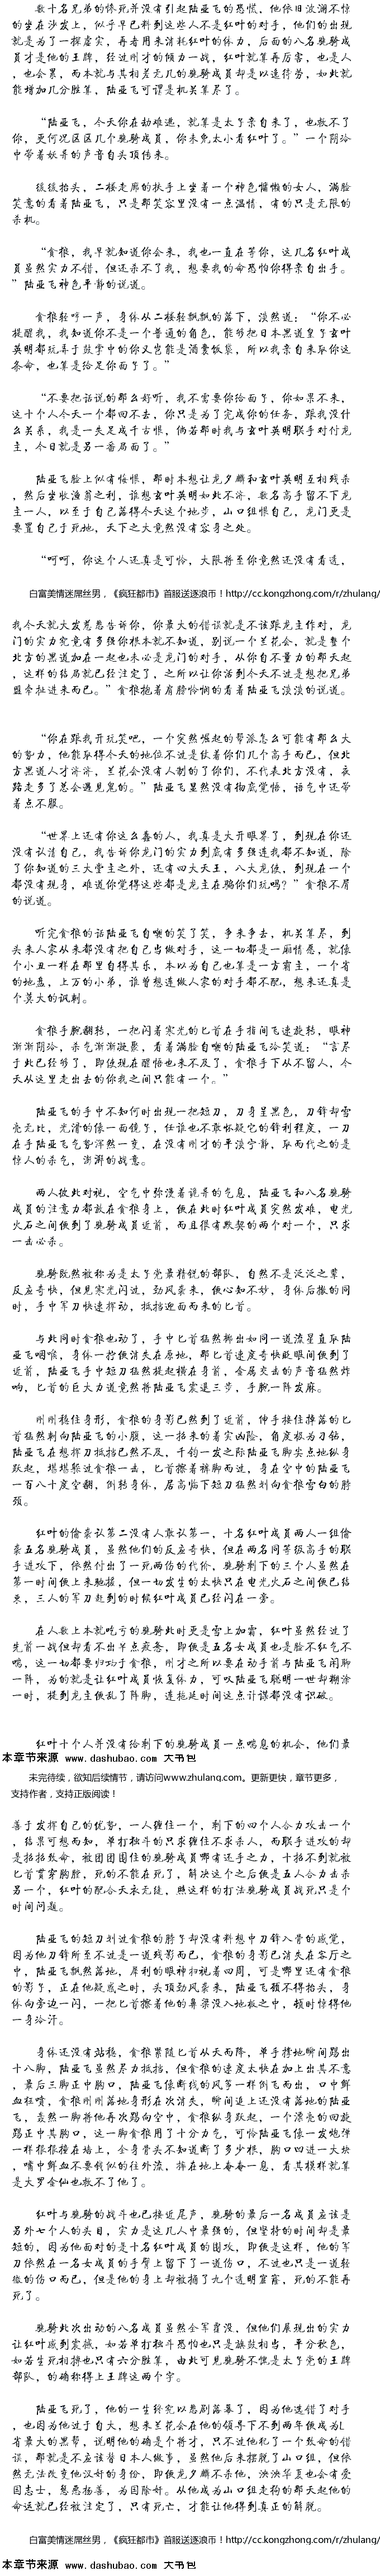 数十名兄弟的惨死并没有引起陆亚飞的恐慌，他依旧波澜不惊
的坐在沙发上，似乎早已料到这些人不是红叶的对手，他们的出现
就是为了一探虚实，再者用来消耗红叶的体力，后面的八名骁骑成
员才是他的王牌，经过刚才的倾力一战，红叶就算再厉害，也是人
，也会累，而本就与其相差无几的骁骑成员却是以逸待劳，如此就
能增加几分胜算，陆亚飞可谓是机关算尽了。
“陆亚飞，今天你在劫难逃，就算是太子亲自来了，也救不了
你，更何况区区几个骁骑成员，你未免太小看红叶了。”一个阴冷
中带着妖异的声音自头顶传来。
缓缓抬头，二楼走廊的扶手上坐着一个神色慵懒的女人，满脸
笑意的看着陆亚飞，只是那笑容里没有一点温情，有的只是无限的
杀机。
“贪狼，我早就知道你会来，我也一直在等你，这几名红叶成
员虽然实力不错，但还杀不了我，想要我的命恐怕你得亲自出手。
”陆亚飞神色平静的说道。
贪狼轻哼一声，身体从二楼轻飘飘的落下，淡然道：“你不必
提醒我，我知道你不是一个普通的角色，能够把日本黑道皇子玄叶
英明都玩弄于鼓掌中的你又岂能是酒囊饭袋，所以我亲自来取你这
条命，也算是给足你面子了。”
“不要把话说的那么好听，我不需要你给面子，你如果不来，
这十个人今天一个都回不去，你只是为了完成你的任务，跟我没什
么关系，我是一失足成千古恨，倘若那时我与玄叶英明联手对付龙
主，今日就是另一番局面了。”
陆亚飞脸上似有悔恨，那时本想让龙夕麟和玄叶英明互相残杀
，然后坐收渔翁之利，谁想玄叶英明如此不济，数名高手留不下龙
主一人，以至于自己落得今天这个地步，山口组恨自己，龙门更是
要置自己于死地，天下之大竟然没有容身之处。
“呵呵，你这个人还真是可怜，大限将至你竟然还没有看透，
白富美情迷屌丝男，《疯狂都市》首服送逐浪币！http://cc.kongzhong.com/r/zhulang/
我今天就大发慈悲告诉你，你最大的错误就是不该跟龙主作对，龙
门的实力究竟有多强你根本就不知道，别说一个兰花会，就是整个
北方的黑道加在一起也未必是龙门的对手，从你自不量力的那天起
，这样的结局就已经注定了，之所以让你活到今天不过是想把兄弟
盟牵扯进来而已。”贪狼抱着肩膀怜悯的看着陆亚飞淡淡的说道。
“你在跟我开玩笑吧，一个突然崛起的帮派怎么可能有那么大
的势力，他能取得今天的地位不过是仗着你们几个高手而已，但北
方黑道人才济济，兰花会没有人制的了你们，不代表北方没有，夜
路走多了总会遇见鬼的。”陆亚飞显然没有彻底觉悟，语气中还带
着点不服。
“世界上还有你这么蠢的人，我真是大开眼界了，到现在你还
没有认清自己，我告诉你龙门的实力到底有多强连我都不知道，除
了你知道的三大堂主之外，还有四大天王，八大龙使，到现在一个
都没有现身，难道你觉得这些都是龙主在骗你们玩吗？”贪狼不屑
的说道。
听完贪狼的话陆亚飞自嘲的笑了笑，争来争去，机关算尽，到
头来人家从来都没有把自己当做对手，这一切都是一厢情愿，就像
个小丑一样在那里自得其乐，本以为自己也算是一方霸主，一个省
的地盘，上万的小弟，谁曾想连做人家的对手都不配，想来还真是
个莫大的讽刺。
贪狼手腕翻转，一把闪着寒光的匕首在手指间飞速旋转，眼神
渐渐阴冷，杀气渐渐凝聚，看着满脸自嘲的陆亚飞冷笑道：“言尽
于此已经够了，即使现在醒悟也来不及了，贪狼手下从不留人，今
天从这里走出去的你我之间只能有一个。”
陆亚飞的手中不知何时出现一把短刀，刀身呈黑色，刀锋却雪
亮无比，光滑的像一面镜子，任谁也不敢怀疑它的锋利程度，一刀
在手陆亚飞气势浑然一变，在没有刚才的平淡宁静，取而代之的是
惊人的杀气，澎湃的战意。
两人彼此对视，空气中弥漫着诡异的气息，陆亚飞和八名骁骑
成员的注意力都放在贪狼身上，便在此时红叶成员突然发难，电光
火石之间便到了骁骑成员近前，而且很有默契的两个对一个，只求
一击必杀。
骁骑既然被称为是太子党最精锐的部队，自然不是泛泛之辈，
反应奇快，但见寒光闪过，劲风袭来，便心知不妙，身体后撤的同
时，手中军刀快速挥动，抵挡迎面而来的匕首。
与此同时贪狼也动了，手中匕首猛然掷出如同一道流星直取陆
亚飞咽喉，身体一拧便消失在原地，那匕首速度奇快眨眼间便到了
近前，陆亚飞手中短刀猛然提起横在身前，金属交击的声音猛然炸
响，匕首的巨大力道竟然将陆亚飞震退三步，手腕一阵发麻。
刚刚稳住身形，贪狼的身影已然到了近前，伸手接住掉落的匕
首猛然刺向陆亚飞的小腹，这一招来的着实凶险，角度极为刁钻，
陆亚飞在想挥刀抵挡已然不及，千钧一发之际陆亚飞脚尖点地纵身
跃起，堪堪躲过贪狼一击，匕首擦着裤脚而过，身在空中的陆亚飞
一百八十度空翻，倒转身体，居高临下短刀猛然划向贪狼雪白的脖
颈。
红叶的偷袭认第二没有人敢认第一，十名红叶成员两人一组偷
袭五名骁骑成员，虽然他们的反应奇快，但在两名同等级高手的联
手进攻下，依然付出了一死两伤的代价，骁骑剩下的三个人虽然在
第一时间便上来驰援，但一切发生的太快只在电光火石之间便已结
束，三人的军刀赶到的时候红叶成员已经闪在一旁。
在人数上本就吃亏的骁骑此时更是雪上加霜，红叶虽然经过了
先前一战但却看不出半点疲惫，即便是五名女成员也是脸不红气不
喘，这一切都要归功于贪狼，刚才之所以要在动手前与陆亚飞闲聊
一阵，为的就是让红叶成员恢复体力，可叹陆亚飞聪明一世却糊涂
一时，提到龙主便乱了阵脚，连拖延时间这点计谋都没有识破。
红叶十个人并没有给剩下的骁骑成员一点喘息的机会，他们最
本章节来源 www.dashubao.com 大书包
未完待续，欲知后续情节，请访问www.zhulang.com。更新更快，章节更多，
支持作者，支持正版阅读！
善于发挥自己的优势，一人缠住一个，剩下的四个人合力攻击一个
，结果可想而知，单打独斗的只求缠住不求杀人，而联手进攻的却
是招招致命，被团团围住的骁骑成员哪有还手之力，十招不到就被
匕首贯穿胸膛，死的不能在死了，解决这个之后便是五人合力击杀
另一个，红叶的配合天衣无缝，照这样的打法骁骑成员战死只是个
时间问题。
陆亚飞的短刀划过贪狼的脖子却没有料想中刀锋入骨的感觉，
因为他刀锋所至不过是一道残影而已，贪狼的身影已消失在客厅之
中，陆亚飞飘然落地，犀利的眼神扫视着四周，可是哪里还有贪狼
的影子，正在他疑惑之时，头顶劲风袭来，陆亚飞顾不得抬头，身
体向旁边一闪，一把匕首擦着他的鼻梁没入地板之中，顿时惊得他
一身冷汗。
身体还没有站稳，贪狼紧随匕首从天而降，单手撑地瞬间踢出
十八脚，陆亚飞虽然尽力抵挡，但贪狼的速度太快在加上出其不意
，最后三脚正中胸口，陆亚飞像断线的风筝一样倒飞而出，口中鲜
血狂喷，贪狼刚刚落地身形在次消失，瞬间追上还没有落地的陆亚
飞，轰然一脚将他再次踢向空中，贪狼纵身跃起，一个漂亮的回旋
踢正中其胸口，这一脚贪狼用了十分力气，可怜陆亚飞像一发炮弹
一样狠狠撞在墙上，全身骨头不知道断了多少根，胸口凹进一大块
，嘴中鲜血不要钱似的往外流，摔在地上奄奄一息，看其模样就算
是大罗金仙也救不了他了。
红叶与骁骑的战斗也已接近尾声，骁骑的最后一名成员应该是
另外七个人的头目，实力是这几人中最强的，但坚持的时间却是最
短的，因为他面对的是十名红叶成员的围攻，即便是这样，他的军
刀依然在一名女成员的手臂上留下了一道伤口，不过也只是一道轻
微的伤口而已，但是他的身上却被捅了九个透明窟窿，死的不能再
死了。
骁骑此次出动的八名成员虽然全军覆没，但他们展现出的实力
让红叶感到震撼，如若单打独斗恐怕也只是旗鼓相当，平分秋色，
如若生死相搏也只有六分胜算，由此可见骁骑不愧是太子党的王牌
部队，的确称得上王牌这两个字。
陆亚飞死了，他的一生终究以悲剧落幕了，因为他选错了对手
，也因为他过于自大，想来兰花会在他的领导下不到两年便成为L
省最大的黑帮，说明他的确是个将才，只不过他犯了一个致命的错
误，那就是不应该替日本人做事，虽然他后来摆脱了山口组，但依
然无法改变他汉奸的身份，即便龙夕麟不杀他，泱泱华夏也会有爱
国志士，惩恶扬善，为国除奸。从他成为山口组走狗的那天起他的
命运就已经被注定了，只有死亡，才能让他得到真正的解脱。
白富美情迷屌丝男，《疯狂都市》首服送逐浪币！http://cc.kongzhong.com/r/zhulang/
本章节来源 www.dashubao.com 大书包